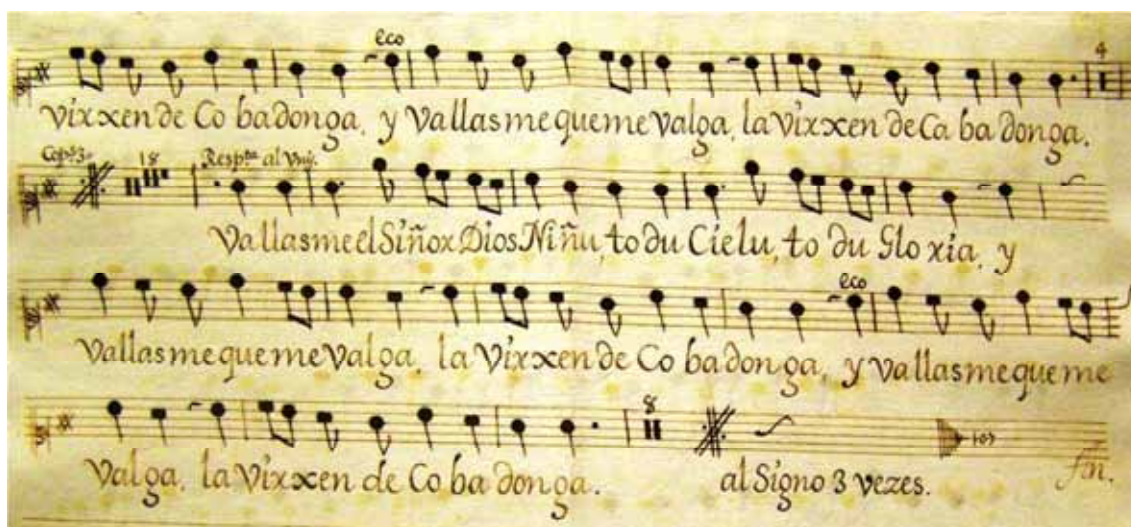 eco 4
virxen de Co ba donga, y Vallas me que me valga, la virxen de Ca ba donga.
Cop.s 3.a 18 Resp.ta al
Vallas me el Siñor Dios Niñu, to du Cielu, to du Gloria, y
eco
Vallas me que me valga, la Virxen de Co ba donga, y vallas me que me
8
Valga, la Virxen de Co ba donga. al Signo 3 vezes. fin.